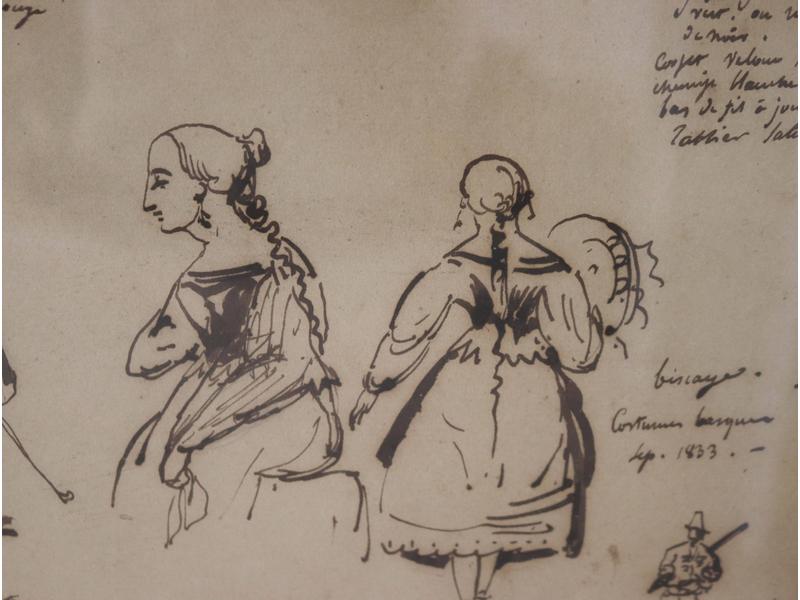 ou
de noir.
Corset velours
chemise blanche
bas de fil à jour
Tablier
biscaye.
Costumes basques
Sep. 1833. -